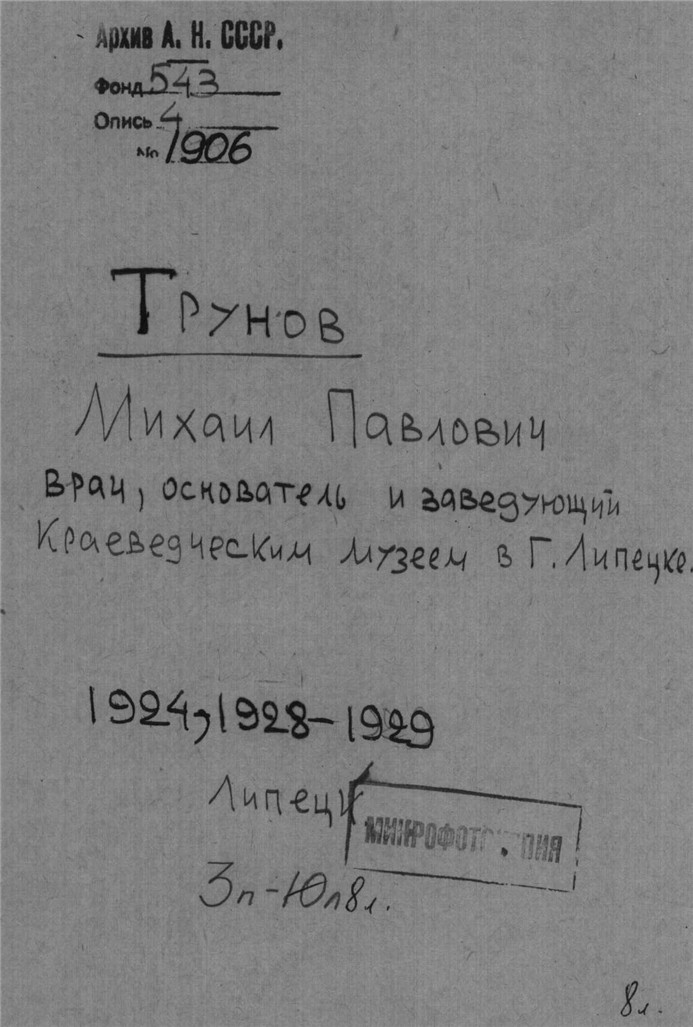 Архив А. Н. СССР.
Фонд 543
Опись 4
№ 1906
Трунов
Михаил Павлович
врач, основатель и заведующий
Краеведческим музеем в г. Липецке.
1924, 1928–1929
Липецк
3п-
8л.
8л.